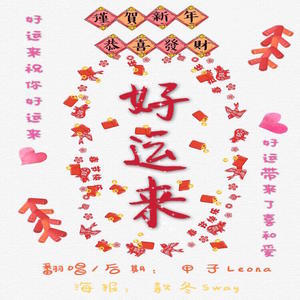 謹賀新年
恭喜發財
好运来祝你好运来
好运来
好运带来了喜和爱
翻唱/后期：甲子Leona
海报：歌冬Sway